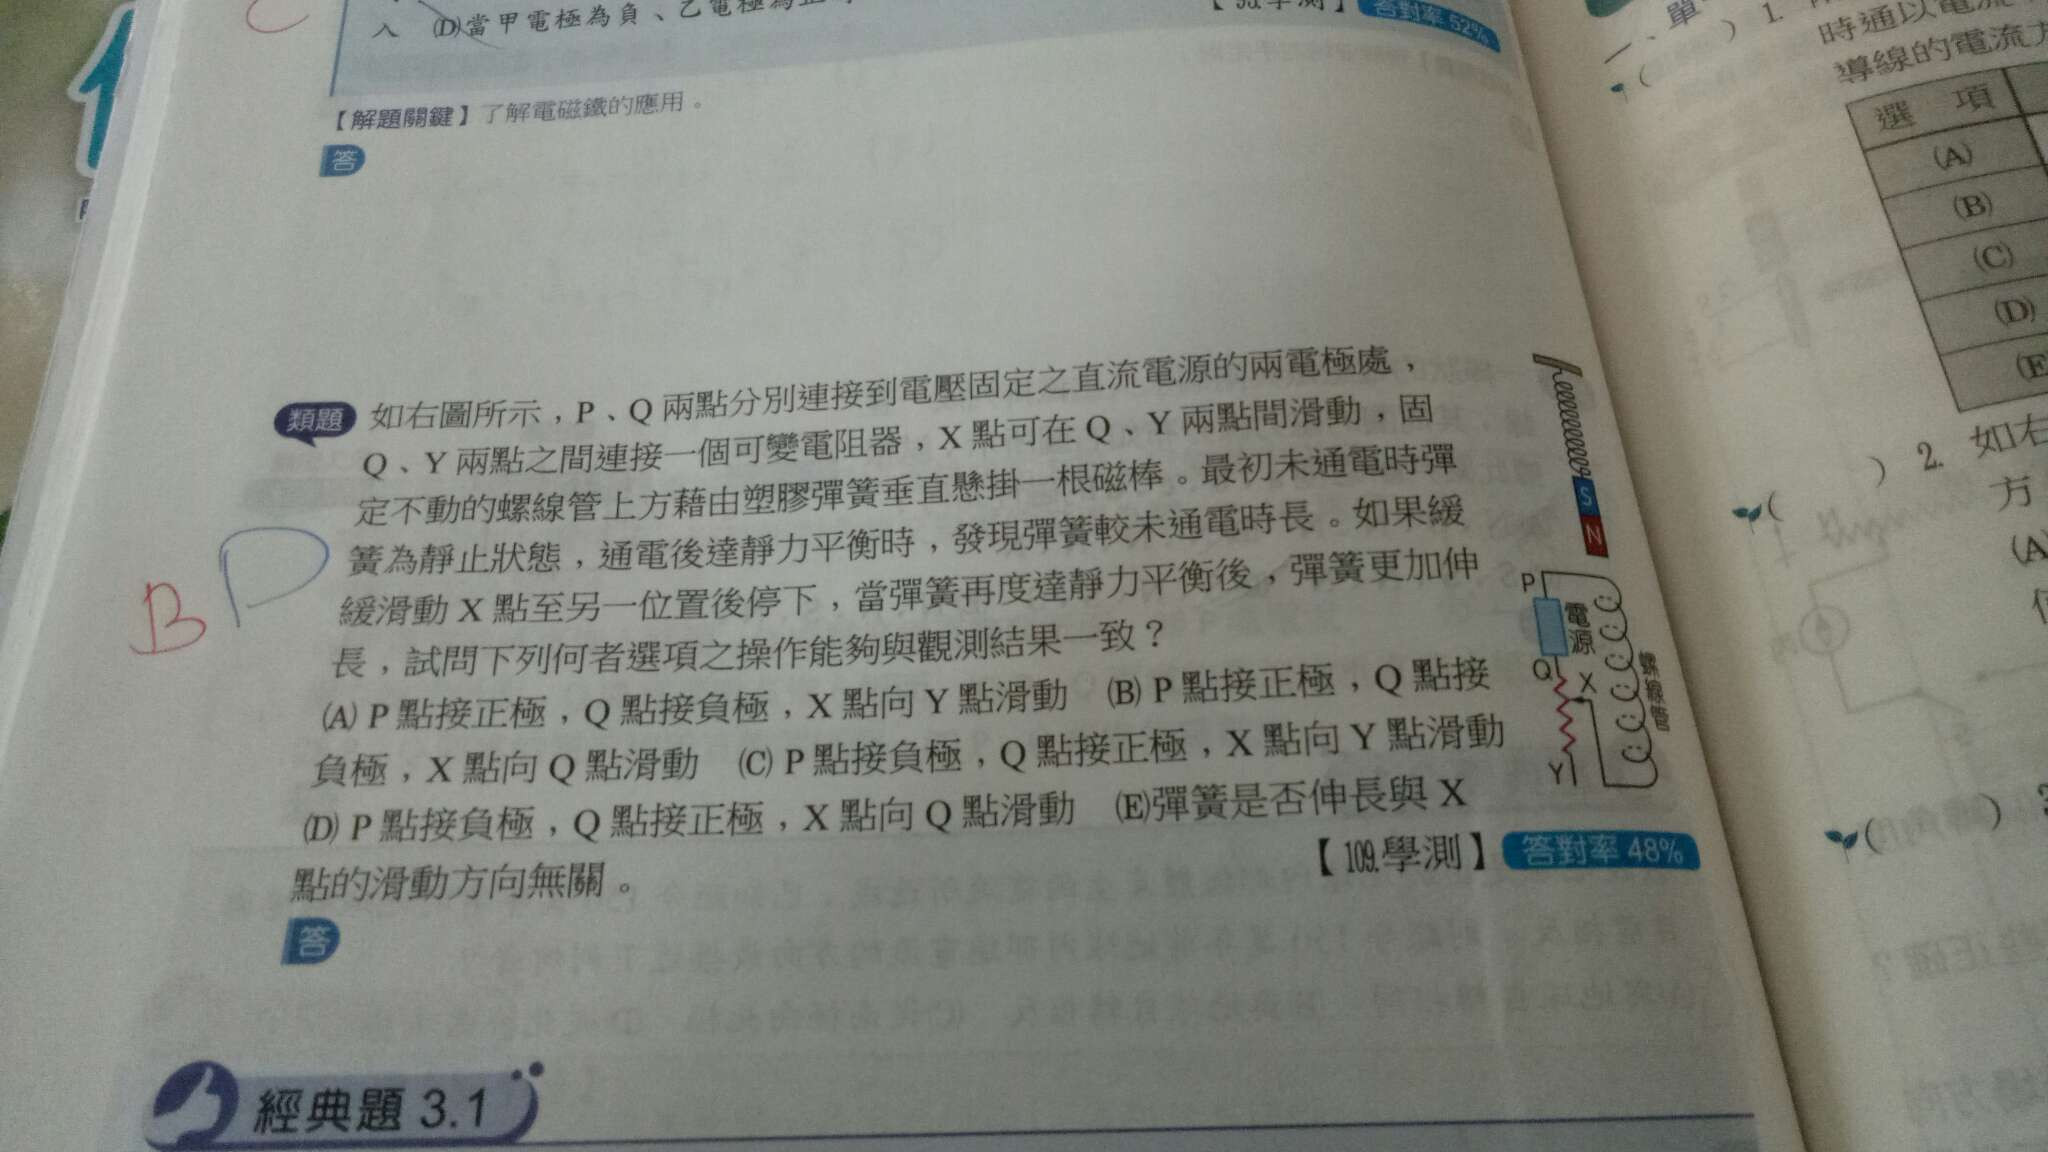 入 (D)當甲電極為負、乙電極為
學測】 答對率 52%
【解題關鍵】了解電磁鐵的應用。
答
類題 如右圖所示,P、Q 兩點分別連接到電壓固定之直流電源的兩電極處,
Q、Y 兩點之間連接一個可變電阻器,X 點可在 Q、Y 兩點間滑動,固
定不動的螺線管上方藉由塑膠彈簧垂直懸掛一根磁棒。最初未通電時彈
簧為靜止狀態,通電後達靜力平衡時,發現彈簧較未通電時長。如果緩
緩滑動 X 點至另一位置後停下,當彈簧再度達靜力平衡後,彈簧更加伸
長,試問下列何者選項之操作能夠與觀測結果一致?
(A) P 點接正極,Q 點接負極,X 點向 Y 點滑動 (B) P 點接正極,Q 點接
負極,X 點向 Q 點滑動 (C) P 點接負極,Q 點接正極,X 點向 Y 點滑動
(D) P 點接負極,Q 點接正極,X 點向 Q 點滑動 (E)彈簧是否伸長與 X
點的滑動方向無關。
【109.學測】 答對率 48%
答
B D
S
N
P
電源
Q
X
螺線管
Y
經典題 3.1
一、單
( ) 1.
時通以電流
導線的電流方
選 項
(A)
(B)
(C)
(D)
(E
( ) 2. 如右
方
(A
( )